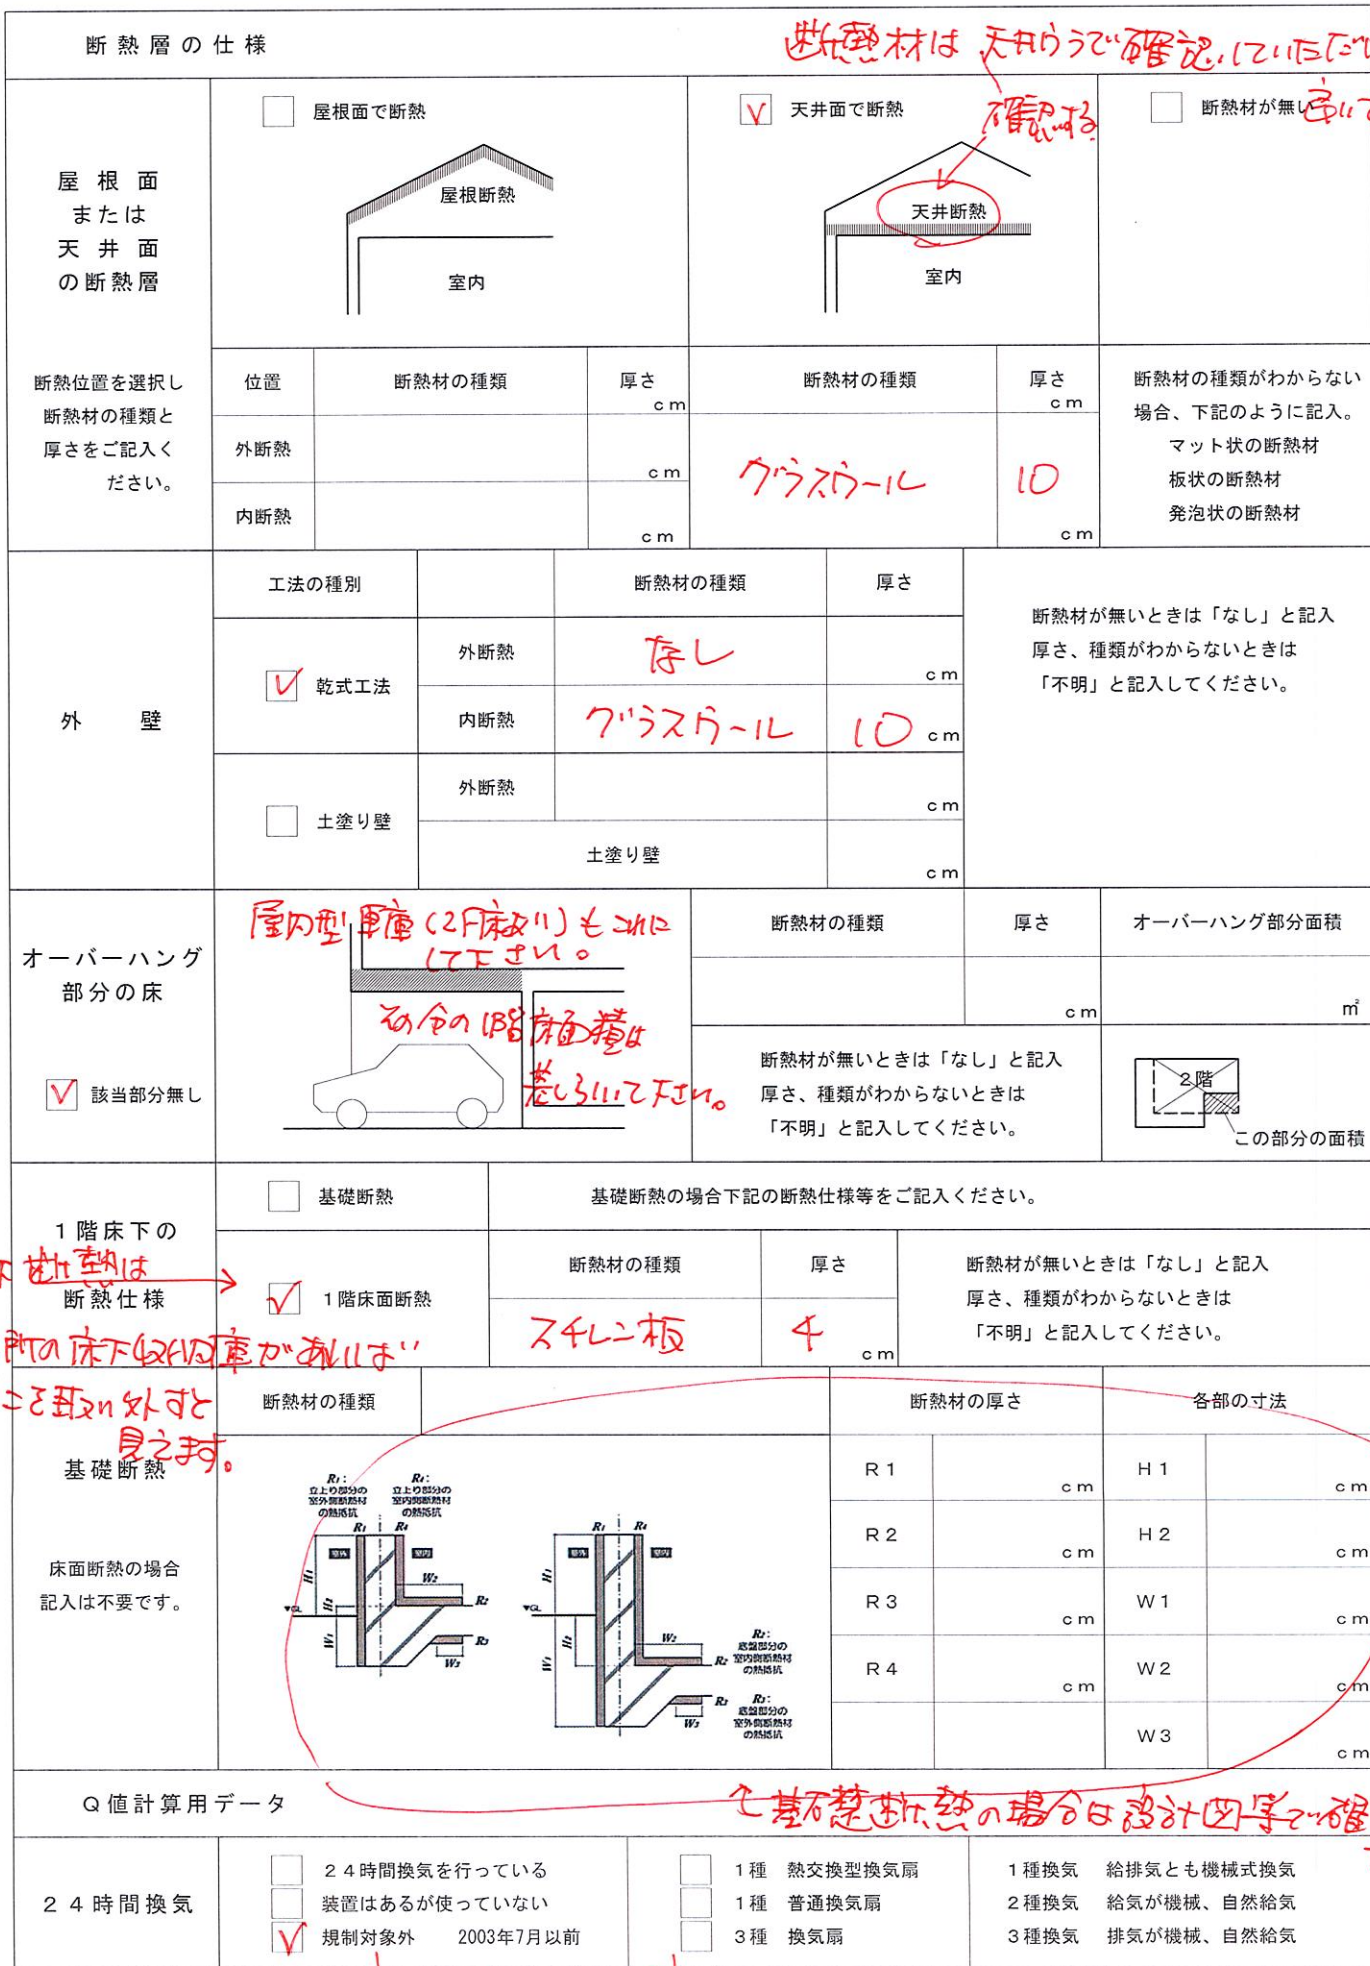 断熱層の仕様
断熱材は天井うらで確認していただ
屋根面
または
天井面
の断熱層
断熱位置を選択し
断熱材の種類と
厚さをご記入く
ださい。
屋根面で断熱
屋根断熱
室内
V 天井面で断熱
確認する
天井断熱
室内
断熱材が無い
位置 断熱材の種類 厚さ
cm
外断熱 cm
内断熱 cm
断熱材の種類 厚さ
cm
グラスウール 10
cm
断熱材の種類がわからない
場合、下記のように記入。
マット状の断熱材
板状の断熱材
発泡状の断熱材
外壁
工法の種別 断熱材の種類 厚さ
V 乾式工法
外断熱 なし cm
内断熱 グラスウール 10 cm
土塗り壁
外断熱 cm
土塗り壁 cm
断熱材が無いときは「なし」と記入
厚さ、種類がわからないときは
「不明」と記入してください。
オーバーハング
部分の床
V 該当部分無し
屋内型車庫(2F床あり)もこれに
して下さい。
その分の1階床面積は
差し引いて下さい。
断熱材の種類 厚さ オーバーハング部分面積
cm ㎡
断熱材が無いときは「なし」と記入
厚さ、種類がわからないときは
「不明」と記入してください。
2階
この部分の面積
1階床下の
断熱仕様
断熱は
の床下収納庫があれば
こを取り外すと
見えます。
基礎断熱 基礎断熱の場合下記の断熱仕様等をご記入ください。
V 1階床面断熱
断熱材の種類 厚さ
スチレン板 4 cm
断熱材が無いときは「なし」と記入
厚さ、種類がわからないときは
「不明」と記入してください。
基礎断熱
床面断熱の場合
記入は不要です。
断熱材の種類 断熱材の厚さ 各部の寸法
R1:
立上り部分の
室外側断熱材
の熱抵抗
R4:
立上り部分の
室内側断熱材
の熱抵抗
R1 R4
室外 室内
H1 W2
▼GL H2 R2
W1 R3
W3
R1 R4
室外 室内
H1
▼GL H2 W2
R2
W1 R3
W3
R2:
底盤部分の
室内側断熱材
の熱抵抗
R3:
底盤部分の
室外側断熱材
の熱抵抗
R1 cm H1 cm
R2 cm H2 cm
R3 cm W1 cm
R4 cm W2 cm
W3 cm
Q値計算用データ
↑基礎断熱の場合は設計図等で確
24時間換気
24時間換気を行っている
装置はあるが使っていない
V 規制対象外 2003年7月以前
1種 熱交換型換気扇
1種 普通換気扇
3種 換気扇
1種換気 給排気とも機械式換気
2種換気 給気が機械、自然給気
3種換気 排気が機械、自然給気